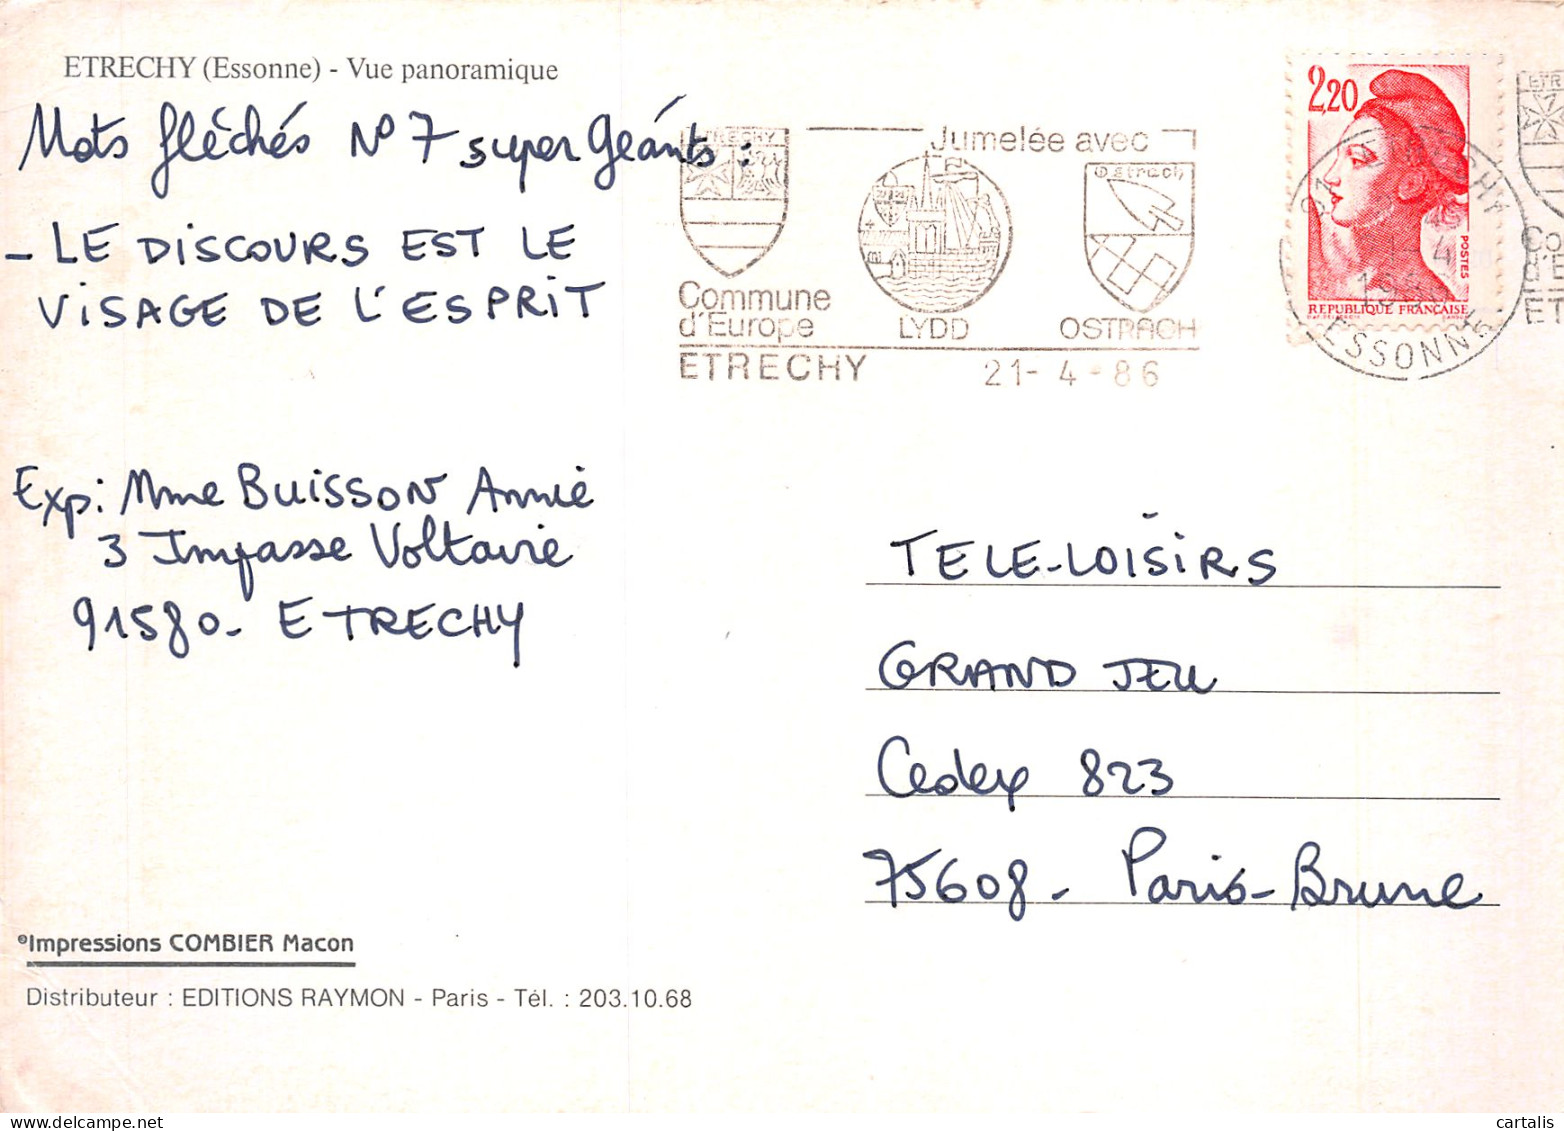 ETRECHY (Essonne) - Vue panoramique
Mots fléchés N° 7 super Géants :
- LE DISCOURS EST LE
VISAGE DE L'ESPRIT
Exp: Mme BUISSON Annie
3 Impasse Voltaire
91580 - ETRECHY
©Impressions COMBIER Macon
Distributeur : EDITIONS RAYMON - Paris - Tél. : 203.10.68
Jumelée avec
Ostrach
Commune
d'Europe
LYDD
OSTRACH
ETRECHY
21-4-86
2,20
POSTES
REPUBLIQUE FRANÇAISE
ESSONNE
TELE-LOISIRS
GRAND JEU
Cedex 823
75608 - Paris-Brune
cartalis